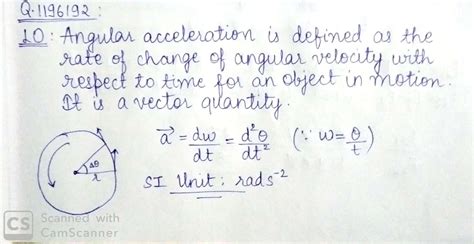 Q.1196192 :
10 : Angular acceleration is defined as the
rate of change of angular velocity with
respect to time for an object in motion.
It is a vector quantity.
a⃗ = dw/dt = d²θ/dt² (∵ w = θ/t)
Δθ
r
SI Unit : rad s⁻²
CS Scanned with
CamScanner